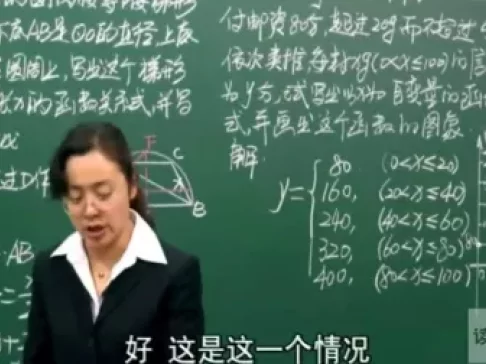 下底AB是⊙O的直径上底
圆周上,写出这个梯形
的函数关系式,并写
过D作
AB
付邮资80分,超过20g而不超过4
依次类推,每封xg(0<x≤100)的信
为y分,试写出以x为自变量的函
式,并画出这个函数的图象
解:
y={
80 (0<x≤20)
160, (20<x≤40)
240, (40<x≤60)
320, (60<x≤80)
400, (80<x≤100)
C
B
80
好 这是这一个情况
读